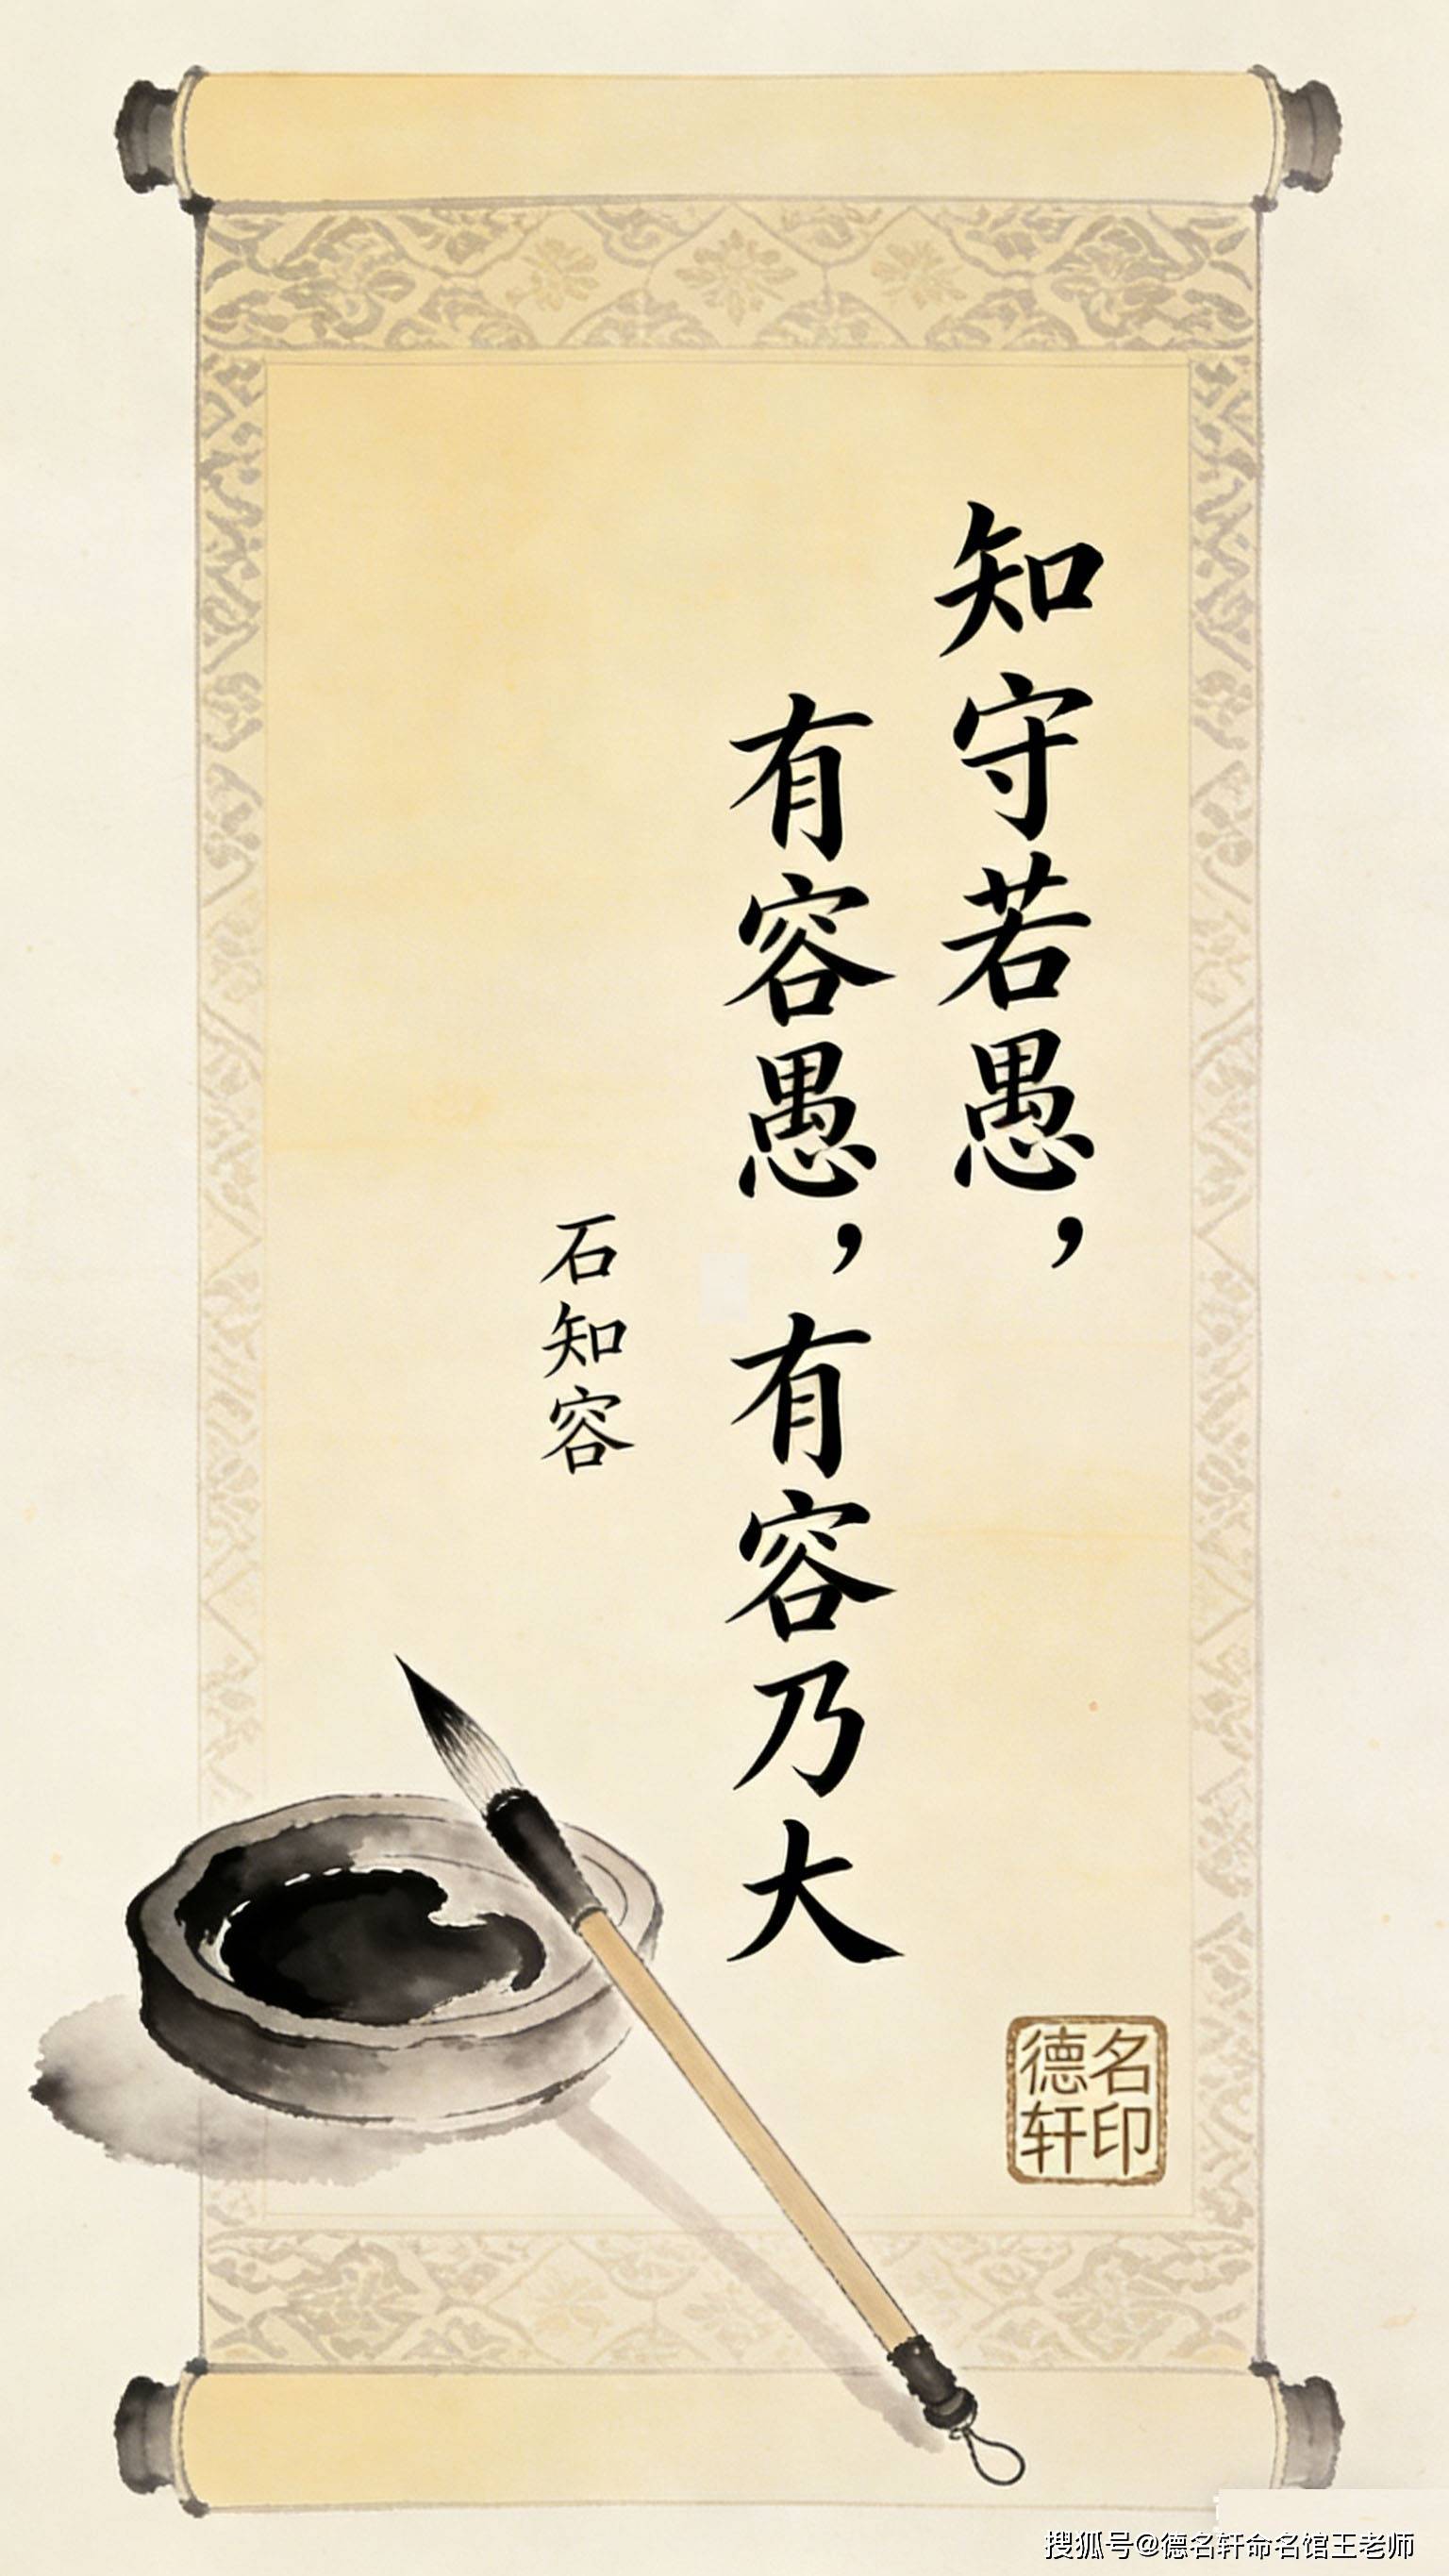 知守若愚，
有容愚，有容乃大
石知容
名印
德轩
搜狐号@德名轩命名馆王老师